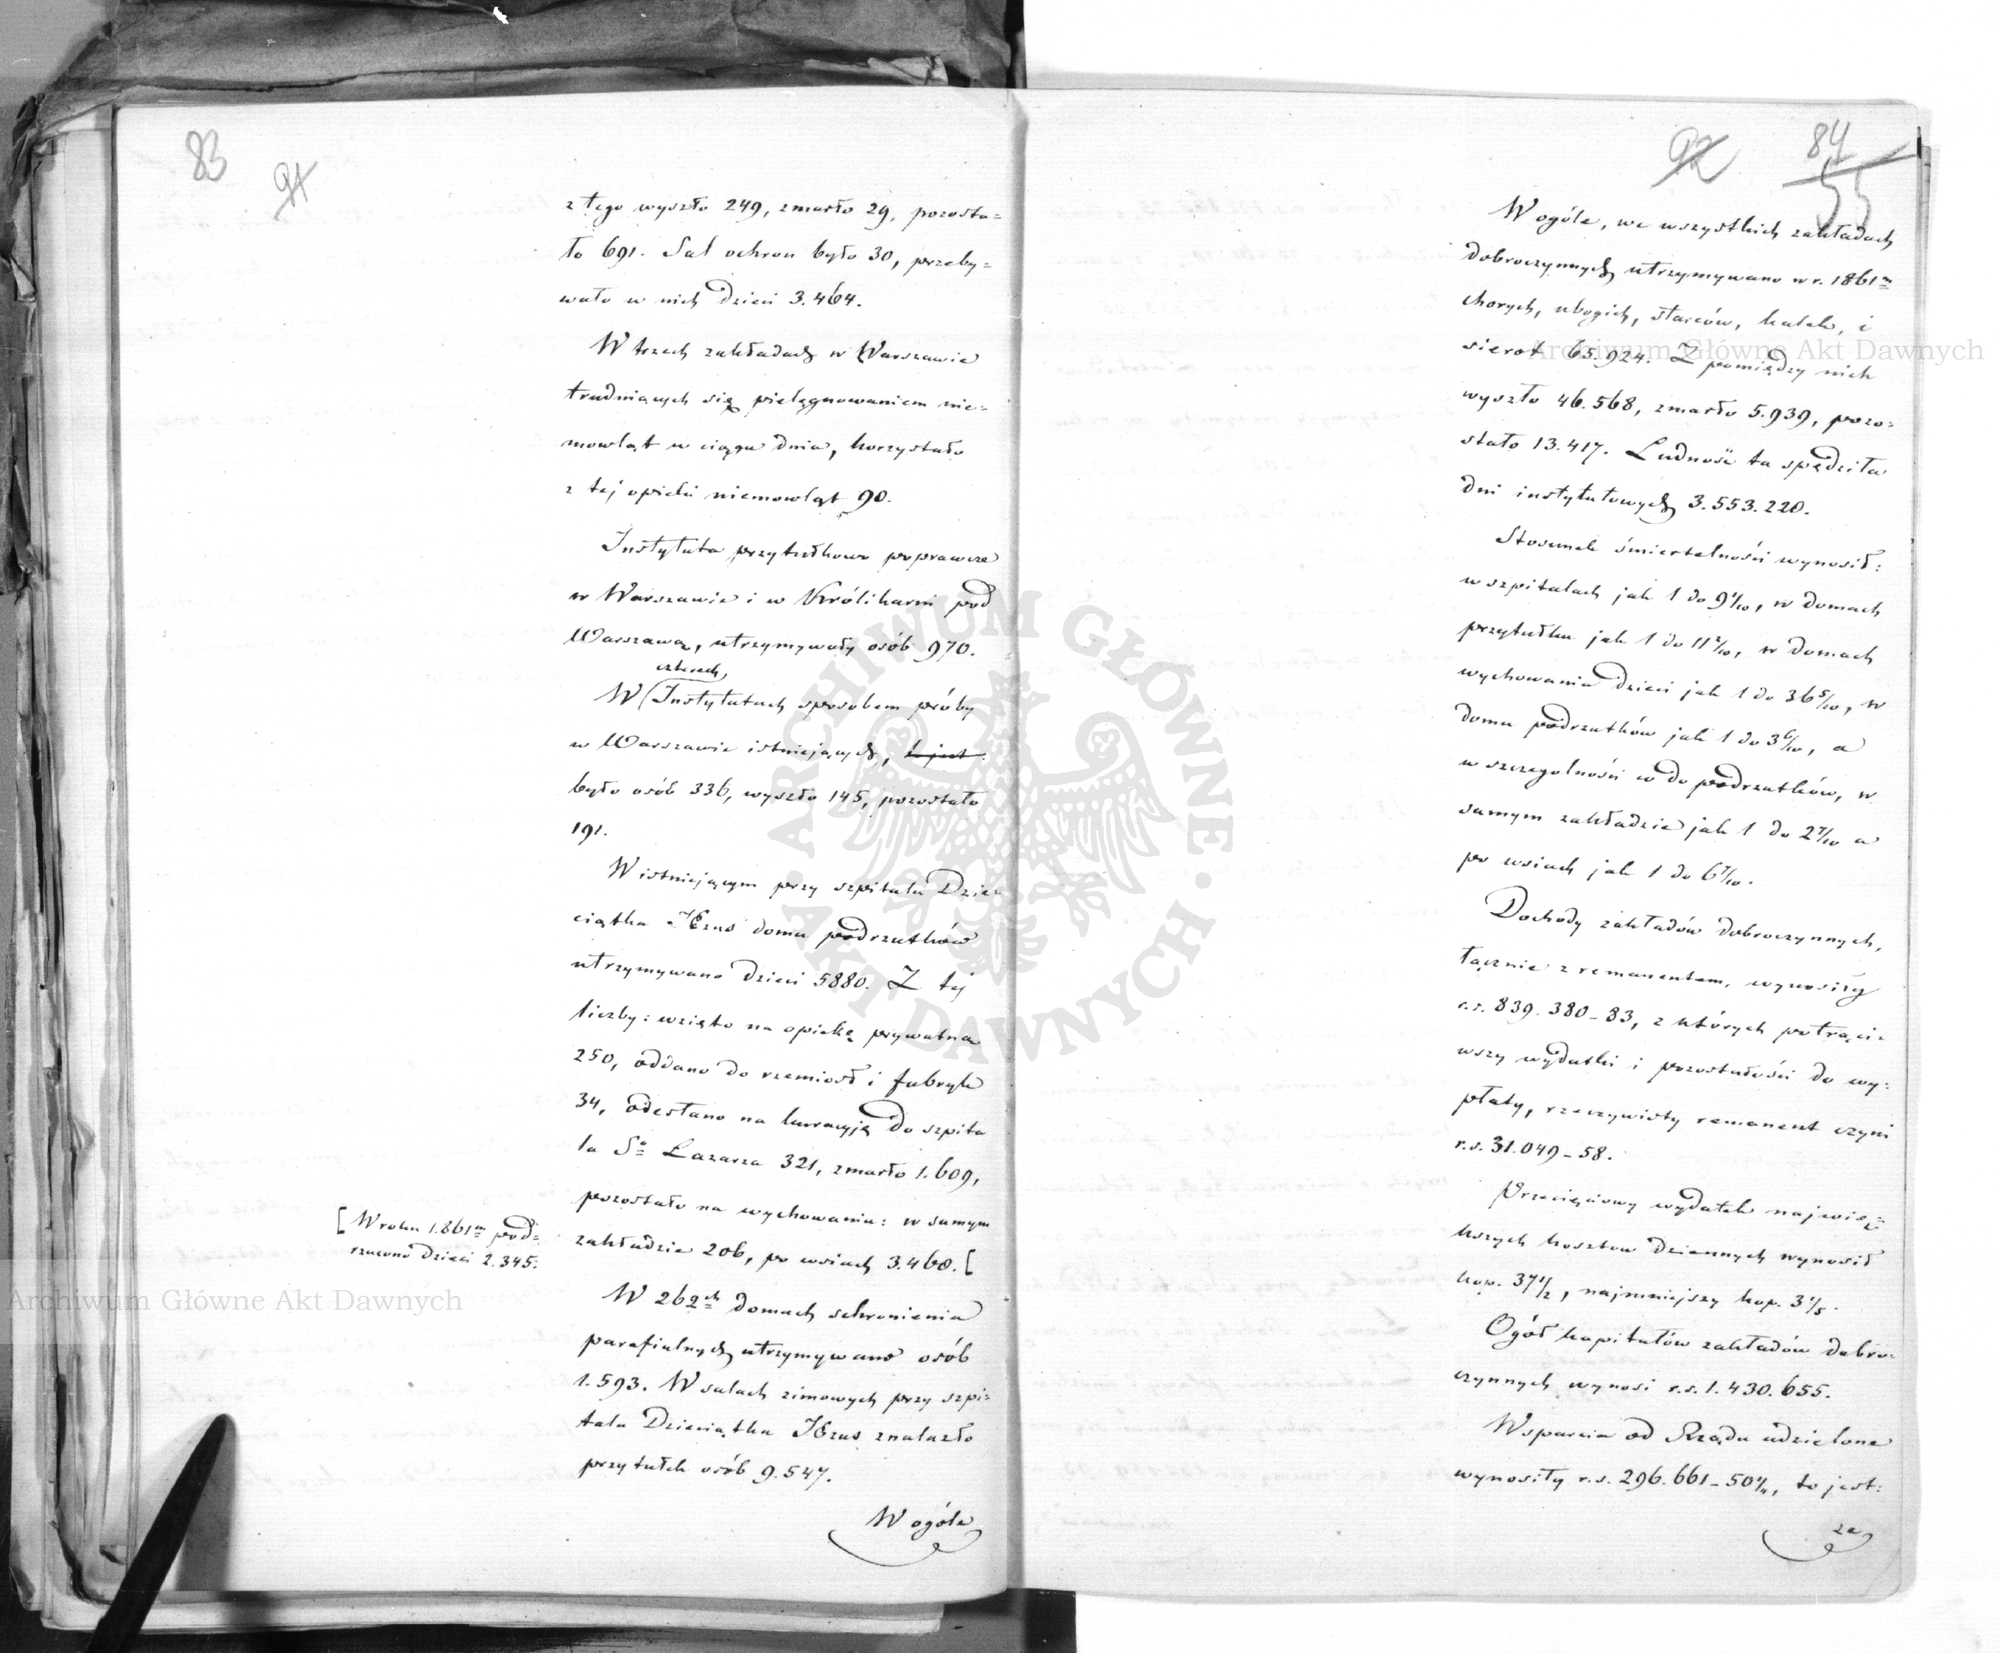 83
91
z tego wyszło 249, zmarło 29, pozosta=
ło 691. Sal ochron było 30, przeby=
wało w nich Dzieci 3.464.
W trzech zakładach w Warszawie
trudniących się pielęgnowaniem nie=
mowląt w ciągu dnia, korzystało
z tej opieki niemowląt 90.
Instytuta przytułkowo poprawcze
w Warszawie i w Królikarni pod
Warszawą, utrzymywały osób 970.
czterech,
W Instytutach sposobem próby
w Warszawie istniejących, to jest
było osób 336, wyszło 145, pozostało
191.
W istniejącym przy szpitalu Dzie=
ciątka Jezus domu podrzutków
utrzymywano Dzieci 5880. Z tej
liczby: wzięto na opiekę prywatną
250, oddano do rzemiosł i fabryk
34, odesłano na kuracyję do szpita
la So Łazarza 321, zmarło 1.609,
pozostało na wychowaniu: w samym
zakładzie 206, po wsiach 3.460. [
[ W roku 1.861m pod=
rzucono Dzieci 2.345.
W 262ch domach schronienia
parafialnych utrzymywano osób
1.593. W salach zimowych przy szpi=
talu Dzieciątka Jezus znalazło
przytułek osób 9.547.
W ogóle
92
84
55
W ogóle, we wszystkich zakładach
dobroczynnych utrzymywano w r. 1861m
chorych, ubogich, starców, kalek, i
sierot 65.924. Z pomiędzy nich
wyszło 46.568, zmarło 5.939, pozo=
stało 13.417. Ludność ta spędziła
dni instytutowych 3.553.220.
Stosunek śmiertelności wynosił:
w szpitalach jak 1 do 9 1/10, w domach
przytułku jak 1 do 11 2/10, w domach
wychowania Dzieci jak 1 do 36 5/10, w
domu podrzutków jak 1 do 3 6/10, a
w szczególności co do podrzutków, w
samym zakładzie jak 1 do 2 7/10 a
po wsiach jak 1 do 6 7/10.
Dochody zakładów dobroczynnych,
łącznie z remanentem, wynosiły
r.s. 839.380-83, z których potrąci=
wszy wydatki i pozostałości do wy=
płaty, rzeczywisty remanent czyni
r.s. 31.049-58.
Przecięciowy wydatek najwię=
kszych kosztów dziennych wynosił
kop. 37 1/2, najmniejszy kop. 3 1/5.
Ogół kapitałów zakładów dobro=
czynnych wynosi r.s. 1.430.655.
Wsparcia od Rządu udzielone
wynosiły r.s. 296.661-50 1/4, to jest:
ze
ARCHIWUM GŁÓWNE AKT DAWNYCH
Archiwum Główne Akt Dawnych
Archiwum Główne Akt Dawnych